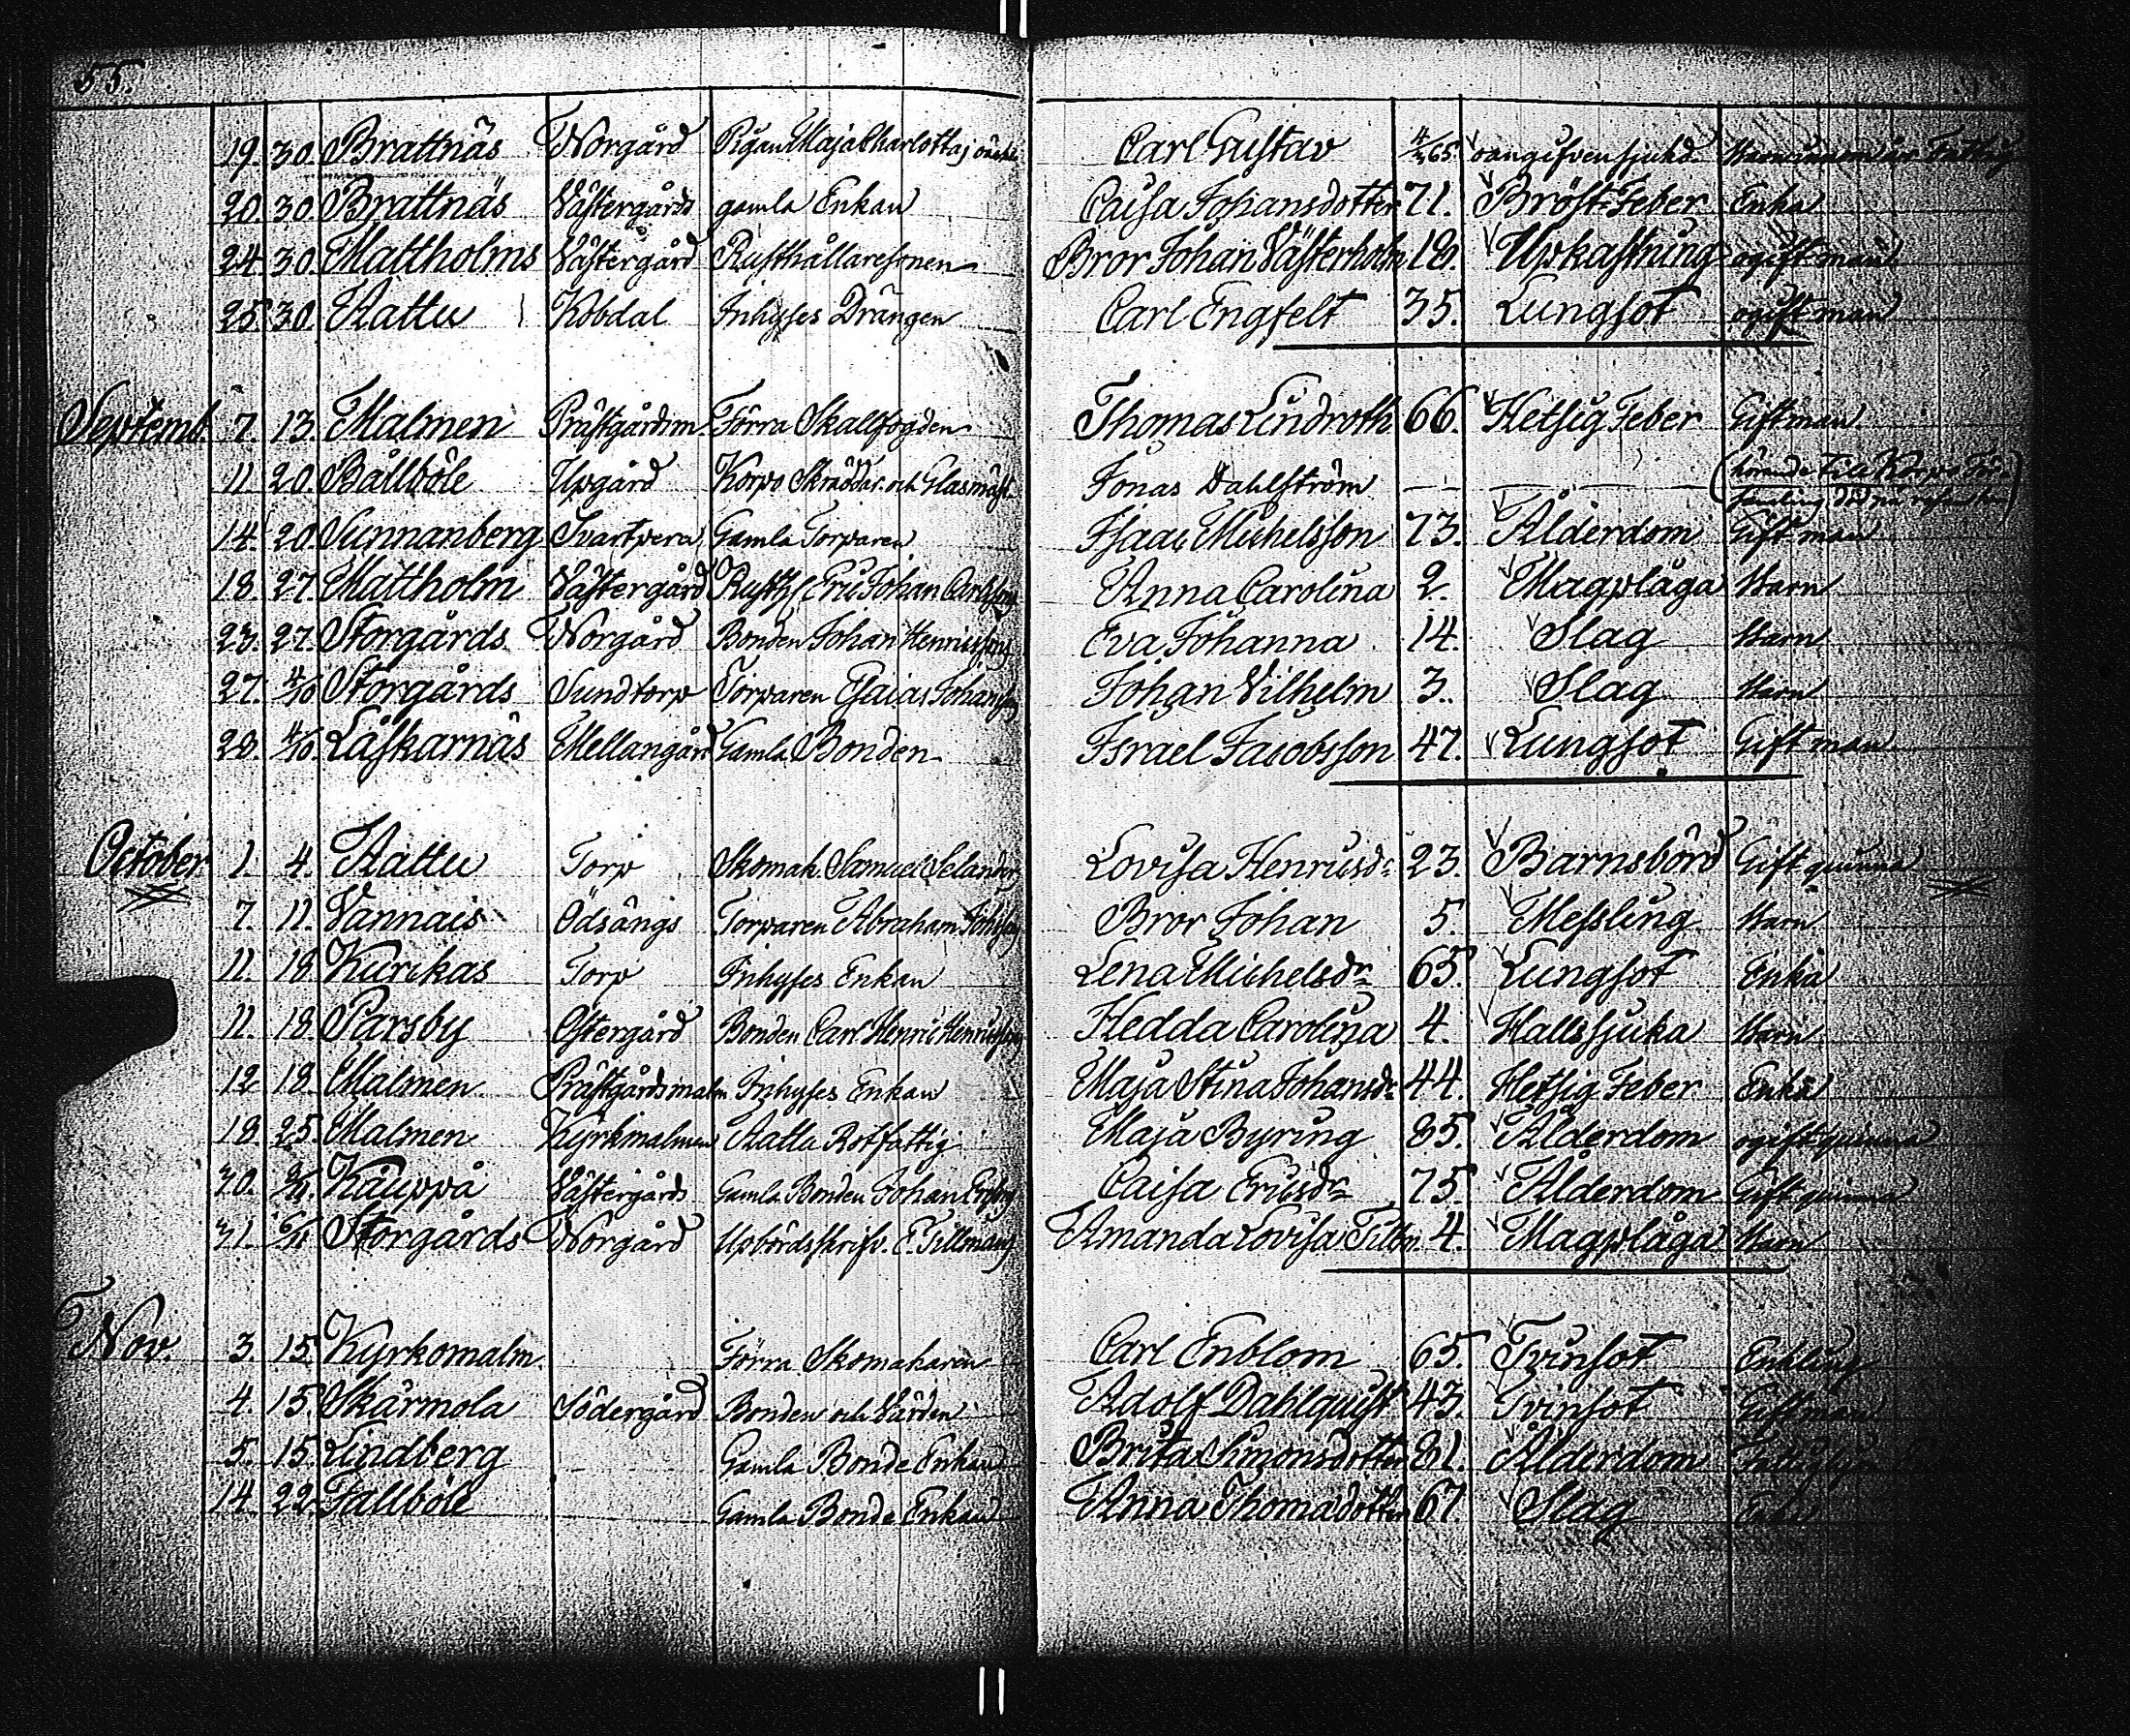 55.
19. 30. Brattnäs Norgård Pigan Maja Charlottas oäkta Carl Gustav 4/65. oangifven sjukd. Barn
20. 30. Brattnäs Västergårds gamla Enkan Caisa Johansdotter 71. Bröst-Feber Enka
24. 30. Mattholms Västergård Rusthållaresonen Bror Johan Västerholm 18. Upkastning ogift man
25. 30. Attu Kobdal Inhyses Drängen Carl Engfelt 35. Lungsot ogift man
Septemb. 7. 13. Malmen Prästgårdsm. Förra Skallfogden Thomas Lindroth 66. Hetsig Feber Gift man
11. 20. Bållböle Upgård Korpo Skräddar. och Glasmäst. Jonas Dahlström — — — (hörande till Korpo
14. 20. Sunnanberg Svartpera Gamla Torparen Isaac Michelsson 73. Ålderdom Gift man
18. 27. Mattholm Västergård Rusth. Eric Johan Carlssons Anna Carolina 2. Magplåga Barn
23. 27. Storgårds Norgård Bonden Johan Henricssons Eva Johanna 14. Slag Barn
27. 4/10 Storgårds Sundtorp Torparen Esaias Johanss. Johan Vilhelm 3. Slag Barn
28. 4/10. Läskarnäs Mellangård Gamla Bonden Israel Jacobsson 47. Lungsot Gift man
October 1. 4. Attu Torp Skomak. Samuel Selanders Lovisa Henricsdr 23. Barnsbörd Gift qvinna
7. 11. Vannais Ödsängs Torparen Abraham Johss. Bror Johan 5. Messling Barn
11. 18. Kurckas Torp Inhyses Enkan Lena Michelsdr 65. Lungsot Enka
11. 18. Parsby Östergård Bonden Carl Henric Henricssons Hedda Carolina 4. Hallssjuka Barn
12 18. Malmen Prästgårdsmalm Inhyses Enkan Maja Stina Johansdr 44. Hetsig Feber Enka
18. 25. Malmen Kyrkmalmen Attu Rotfattig Maja Byring 85. Ålderdom ogift qvinna
30. Kåuppå Västergårds Gamla Bonden Johan Caisa Ericsdr 75. Ålderdom Gift qvinna
31. Storgårds Norgård Upbördsskrifv. E. Tillmans Amanda Lovisa Tillm. 4. Magplåga Barn
Nov. 3. 15. Kyrkomalm. Förra Skomakaren Carl Enblom 65. Tvinsot Enkling
4. 15. Skärmola Södergård Bonden och Värden Adolf Dahlquist 43. Tvinsot Gift man
5. 15. Lindberg Gamla Bonde Enkan Brita Simonsdotter 81. Ålderdom
14. 22. Tallböle Gamla Bonde Enkan Anna Thomasdotter 67. Slag Enka